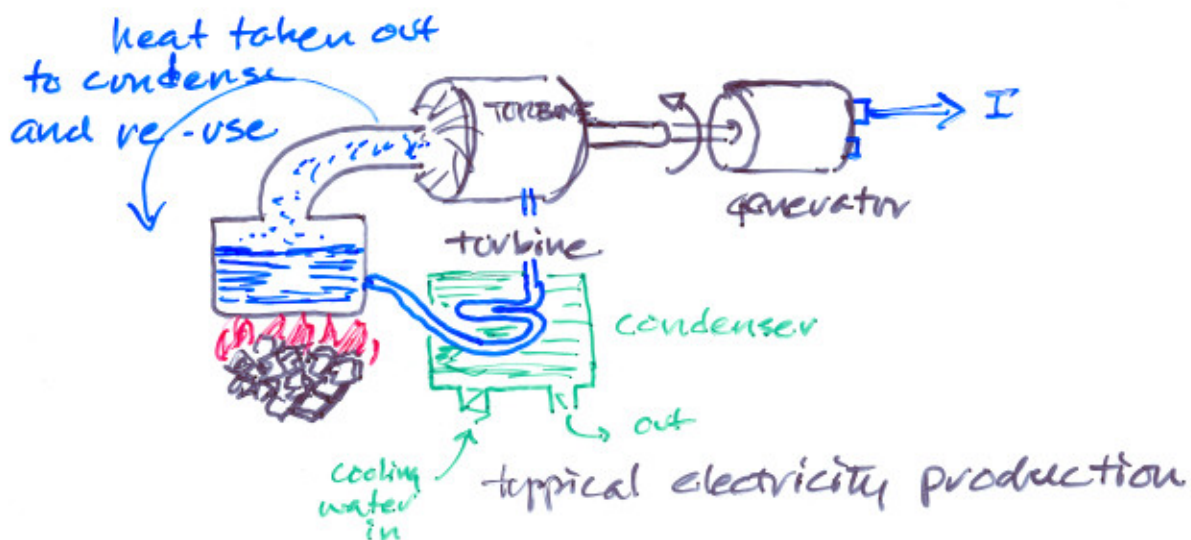 heat taken out
to condense
and re-use
TURBINE
I
generator
turbine
condenser
out
cooling
water
in
typical electricity production